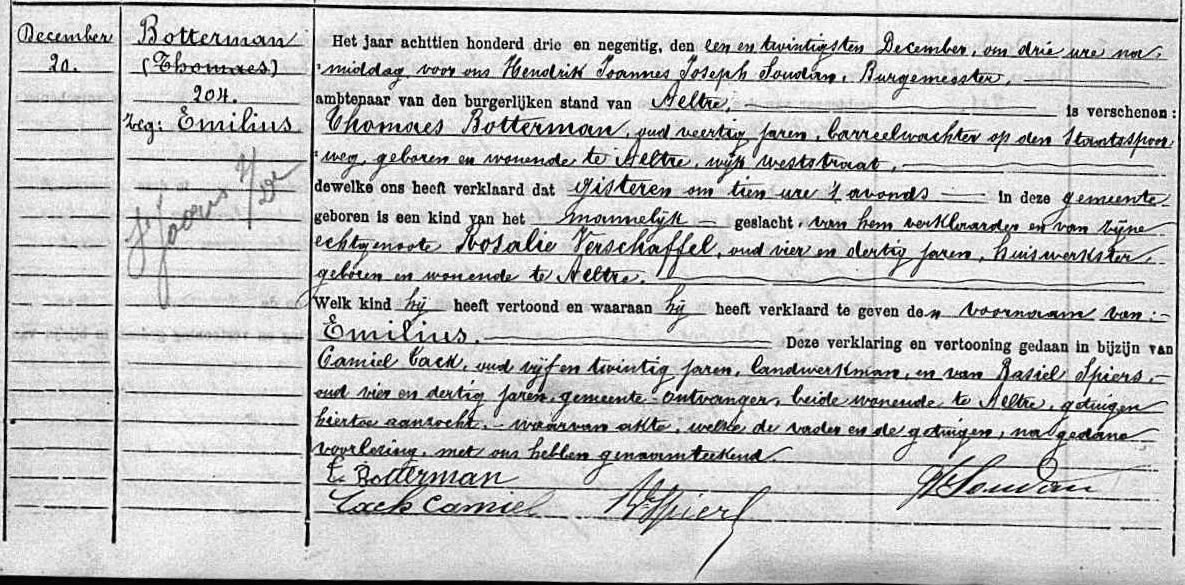 December
20.
Botterman
(Thomaes)
204.
zeg: Emilius
Het jaar achttien honderd drie en negentig, den een en twintigsten December, om drie ure na-
middag voor ons Hendrik Joannes Joseph Soudan, Burgemeester,
ambtenaar van den burgerlijken stand van Aeltre, is verschenen:
Thomaes Botterman, oud veertig jaren, barreelwachter op den Staatsspoor
weg, geboren en wonende te Aeltre, wijk weststraat,
dewelke ons heeft verklaard dat gisteren om tien ure 's avonds in deze gemeente
geboren is een kind van het mannelijk geslacht, van hem verklaarder en van zijne
echtgenoote Rosalie Verschaffel, oud vier en dertig jaren, huiswerkster,
geboren en wonende te Aeltre.
Welk kind hij heeft vertoond en waaraan hij heeft verklaard te geven den voornaam van:-
Emilius. Deze verklaring en vertooning gedaan in bijzijn van
Camiel Cack, oud vijf en twintig jaren, landwerkman, en van Basiel Spiers,-
oud vier en dertig jaren, gemeente-ontvanger, beide wonende te Aeltre, getuigen
hiertoe aanzocht.- waarvan akte, welke de vader en de getuigen, na gedane
voorlezing, met ons hebben genaamteekend.
Botterman
Cack Camiel Spiers Soudan